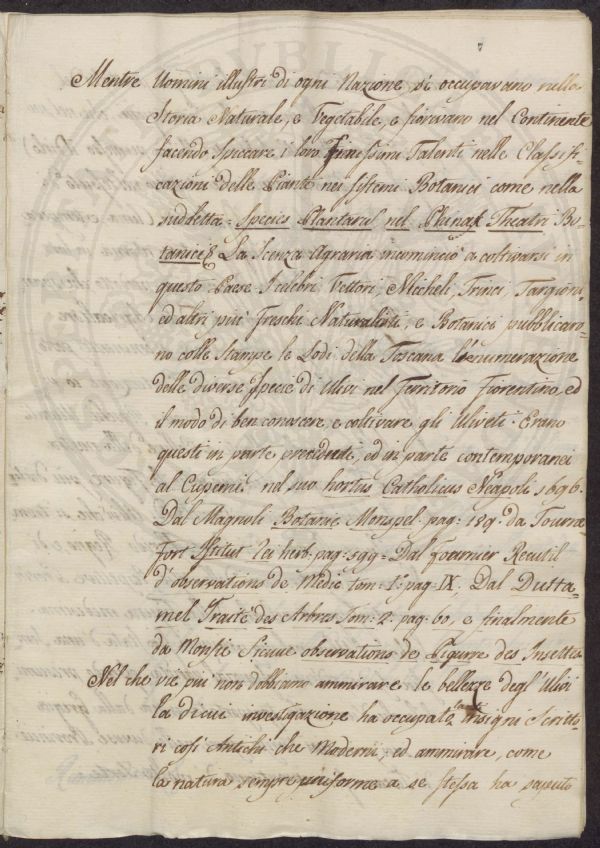 7
Mentre Uomini illustri di ogni Nazione si occupavano nella
Storia Naturale, e Vegetabile, e fiorivano nel Continente
facendo spiccare i loro finissimi Talenti nelle Classifi-
cazioni delle Piante nei sistemi Botanici come nella
suddetta Species Plantarum nel Theatri Bo-
tanices La Scenza Agraria incominciò a coltivarsi in
questo Paese I celebri Vettori, Micheli, Trinci, Targioni,
ed altri più freschi Naturalisti, e Botanici pubblicaro-
no colle stampe le Lodi della Toscana l'enumerazione
delle diverse specie di Ulivi nel Territorio Fiorentino, ed
il modo di ben conoscere, e coltivare gli Uliveti. Erano
questi in parte ed in parte contemporanei
al Cupemi nel suo hortus Catholicus Neapoli 1696.
Dal Magnoli Botanic Monspel. pag: 189. da Tourne
fort Istitut rei herb. pag: 599. Dal Fournier Recueil
d'observations de Medic tom: 1.° pag. IX, Dal Dutta-
mel Traité des Arbres Tom: 2. pag. 60, e finalmente
da Monsie Sieuve observations de Pigurre des Insettes
Nel che vie più non dobbiamo ammirare le bellezze degl'Ulivi
la dicui investigazione ha occupato tanti insigni Scritto-
ri così Antichi che Moderni, ed ammirare, come
la natura sempre uniforme a se stessa ha saputo